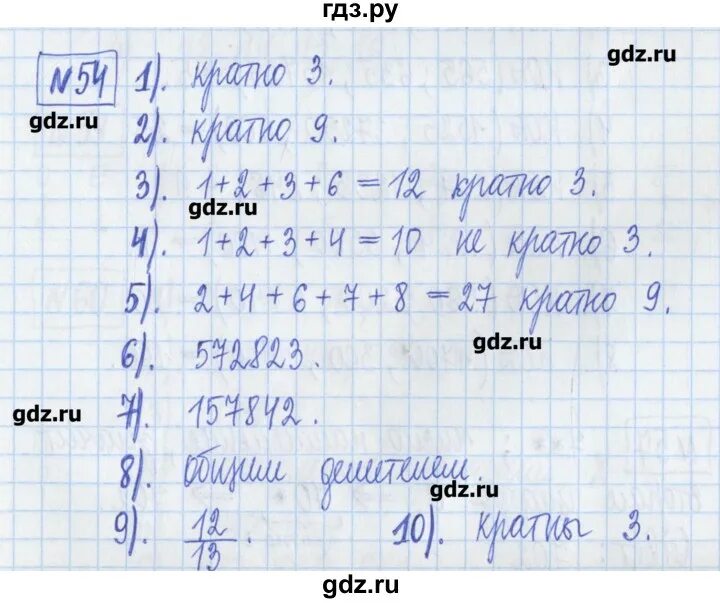 гдз.ру
gdz.ru
№54 1). кратно 3.
gdz.ru
2). кратно 9.
3). 1+2+3+6 = 12 кратно 3.
gdz.ru
4). 1+2+3+4 = 10 не кратно 3.
5). 2+4+6+7+8 = 27 кратно 9.
gdz.ru
6). 572823.
gdz.ru
7). 157842.
8). общим делителем.
gdz.ru
9). 12/13. 10). кратны 3.
gdz.ru